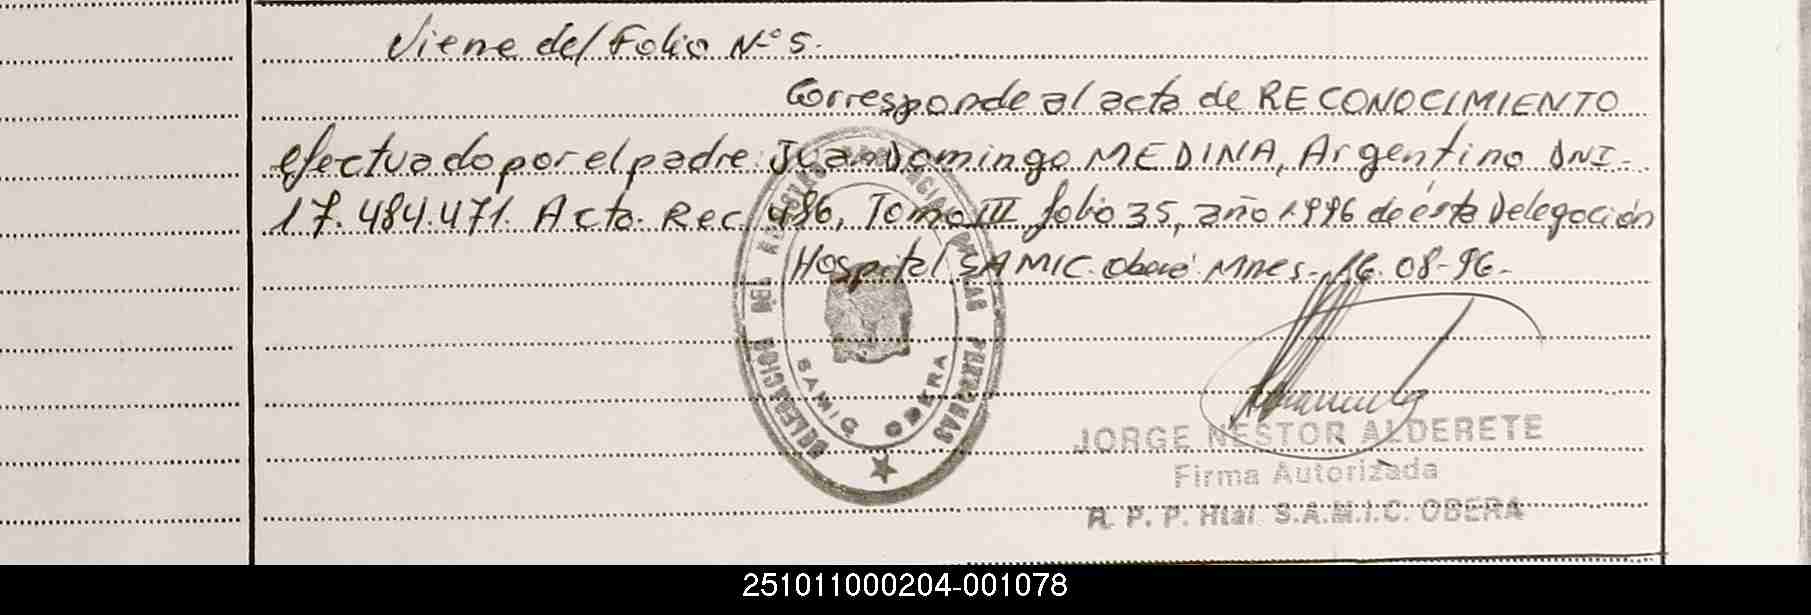 Viene del Folio Nº 5.
Corresponde al acta de RECONOCIMIENTO
efectuado por el padre: Juan Domingo MEDINA, Argentino DNI.
17.484.471. Acta. Rec. 486, Tomo III folio 35, año 1.996 de ésta Delegación
Hospital SAMIC. Oberá Mnes. 16.08-96.
DELEGACION DEL REGISTRO PROVINCIAL DE LAS PERSONAS
SAMIC OBERA
JORGE NESTOR ALDERETE
Firma Autorizada
R. P. P. Htal. S.A.M.I.C. OBERA
251011000204-001078